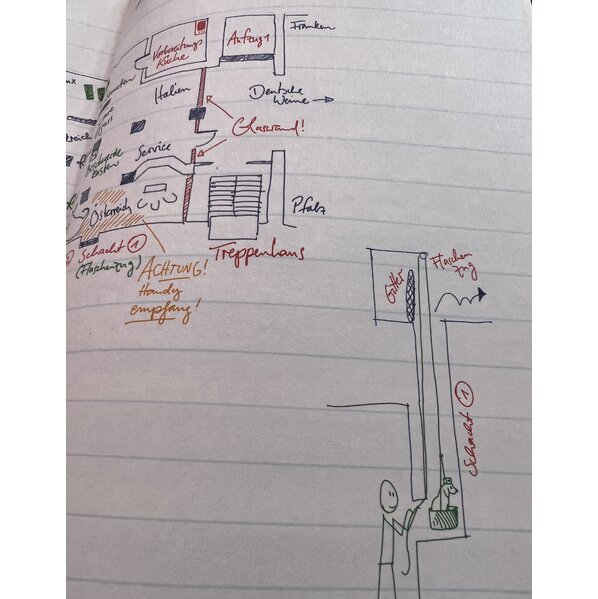 Franken
Vorbereitungs
Küche
Aufzug 1
Italien
Deutsche
Weine →
Glaswand!
Service
Österreich
Pfalz
Schacht ①
(Flaschenzug)
Treppenhaus
ACHTUNG!
Handy
empfang!
Flaschen
zug
Gitter
Schacht ①